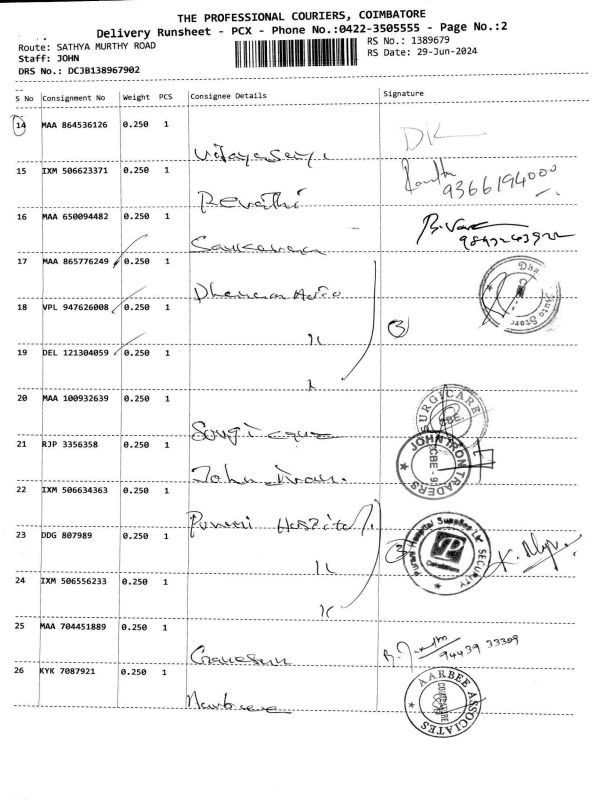 THE PROFESSIONAL COURIERS, COIMBATORE
Delivery Runsheet - PCX - Phone No.:0422-3505555 - Page No.:2
Route: SATHYA MURTHY ROAD
RS No.: 1389679
Staff: JOHN
RS Date: 29-Jun-2024
DRS No.: DCJB138967902
S No Consignment No Weight PCS Consignee Details Signature
14 MAA 864536126 0.250 1
15 IXM 506623371 0.250 1
Revathi 9366194000
16 MAA 650094482 0.250 1
17 MAA 865776249 0.250 1
18 VPL 947626008 0.250 1
3
19 DEL 121304059 0.250 1
20 MAA 100932639 0.250 1
SURGICARE CBE.
21 RJP 3356358 0.250 1
JOHN IRON TRADERS
22 IXM 506634363 0.250 1
23 DDG 807989 0.250 1
3 Hospital Supplies SECURITY
24 IXM 506556233 0.250 1
25 MAA 704451889 0.250 1
94439 33309
26 KYK 7087921 0.250 1
AARBEE ASSOCIATES COIMBATORE